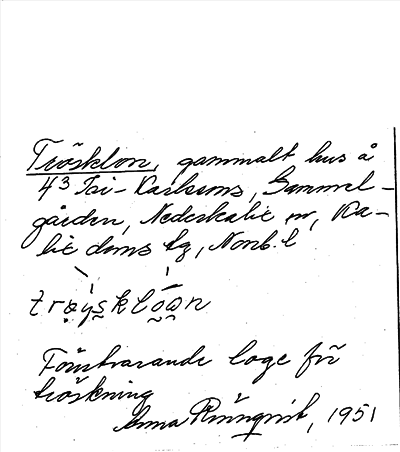 Trösklon, gammalt hus å
4³ Isi-Karlssons, Gammel-
gården, Nederkalix sn, Ka-
lix doms tg, Norrb. l
tröysklóan
Försvarande loge för
tröskning
Anna Rönnqvist, 1951